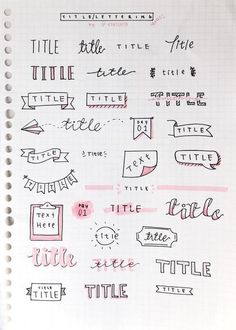 TITLE/LETTERING
by
TITLE title TITLE title
TITLE title TITLE
TITLE TITLE TITLE
title DAY 01 TITLE
TITLE title TEXT TITLE
TITLE
TITLE
TEXT HERE DAY 01 TITLE title
title title
title title TITLE
TITLE TITLE TITLE TITLE